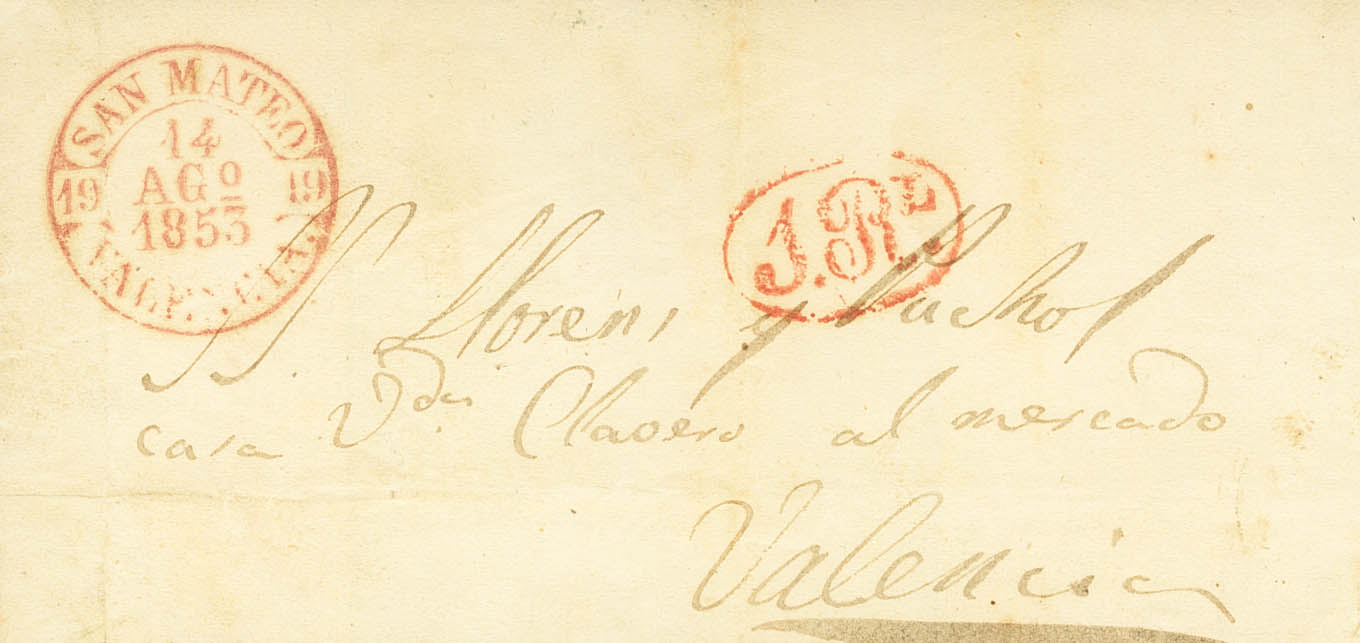 SAN MATEO
14
AGº
1853
19 19
VALENCIA.
J. Rᴸ
SS. Llorens y Puchol
casa Vda Clavero al mercado
Valencia